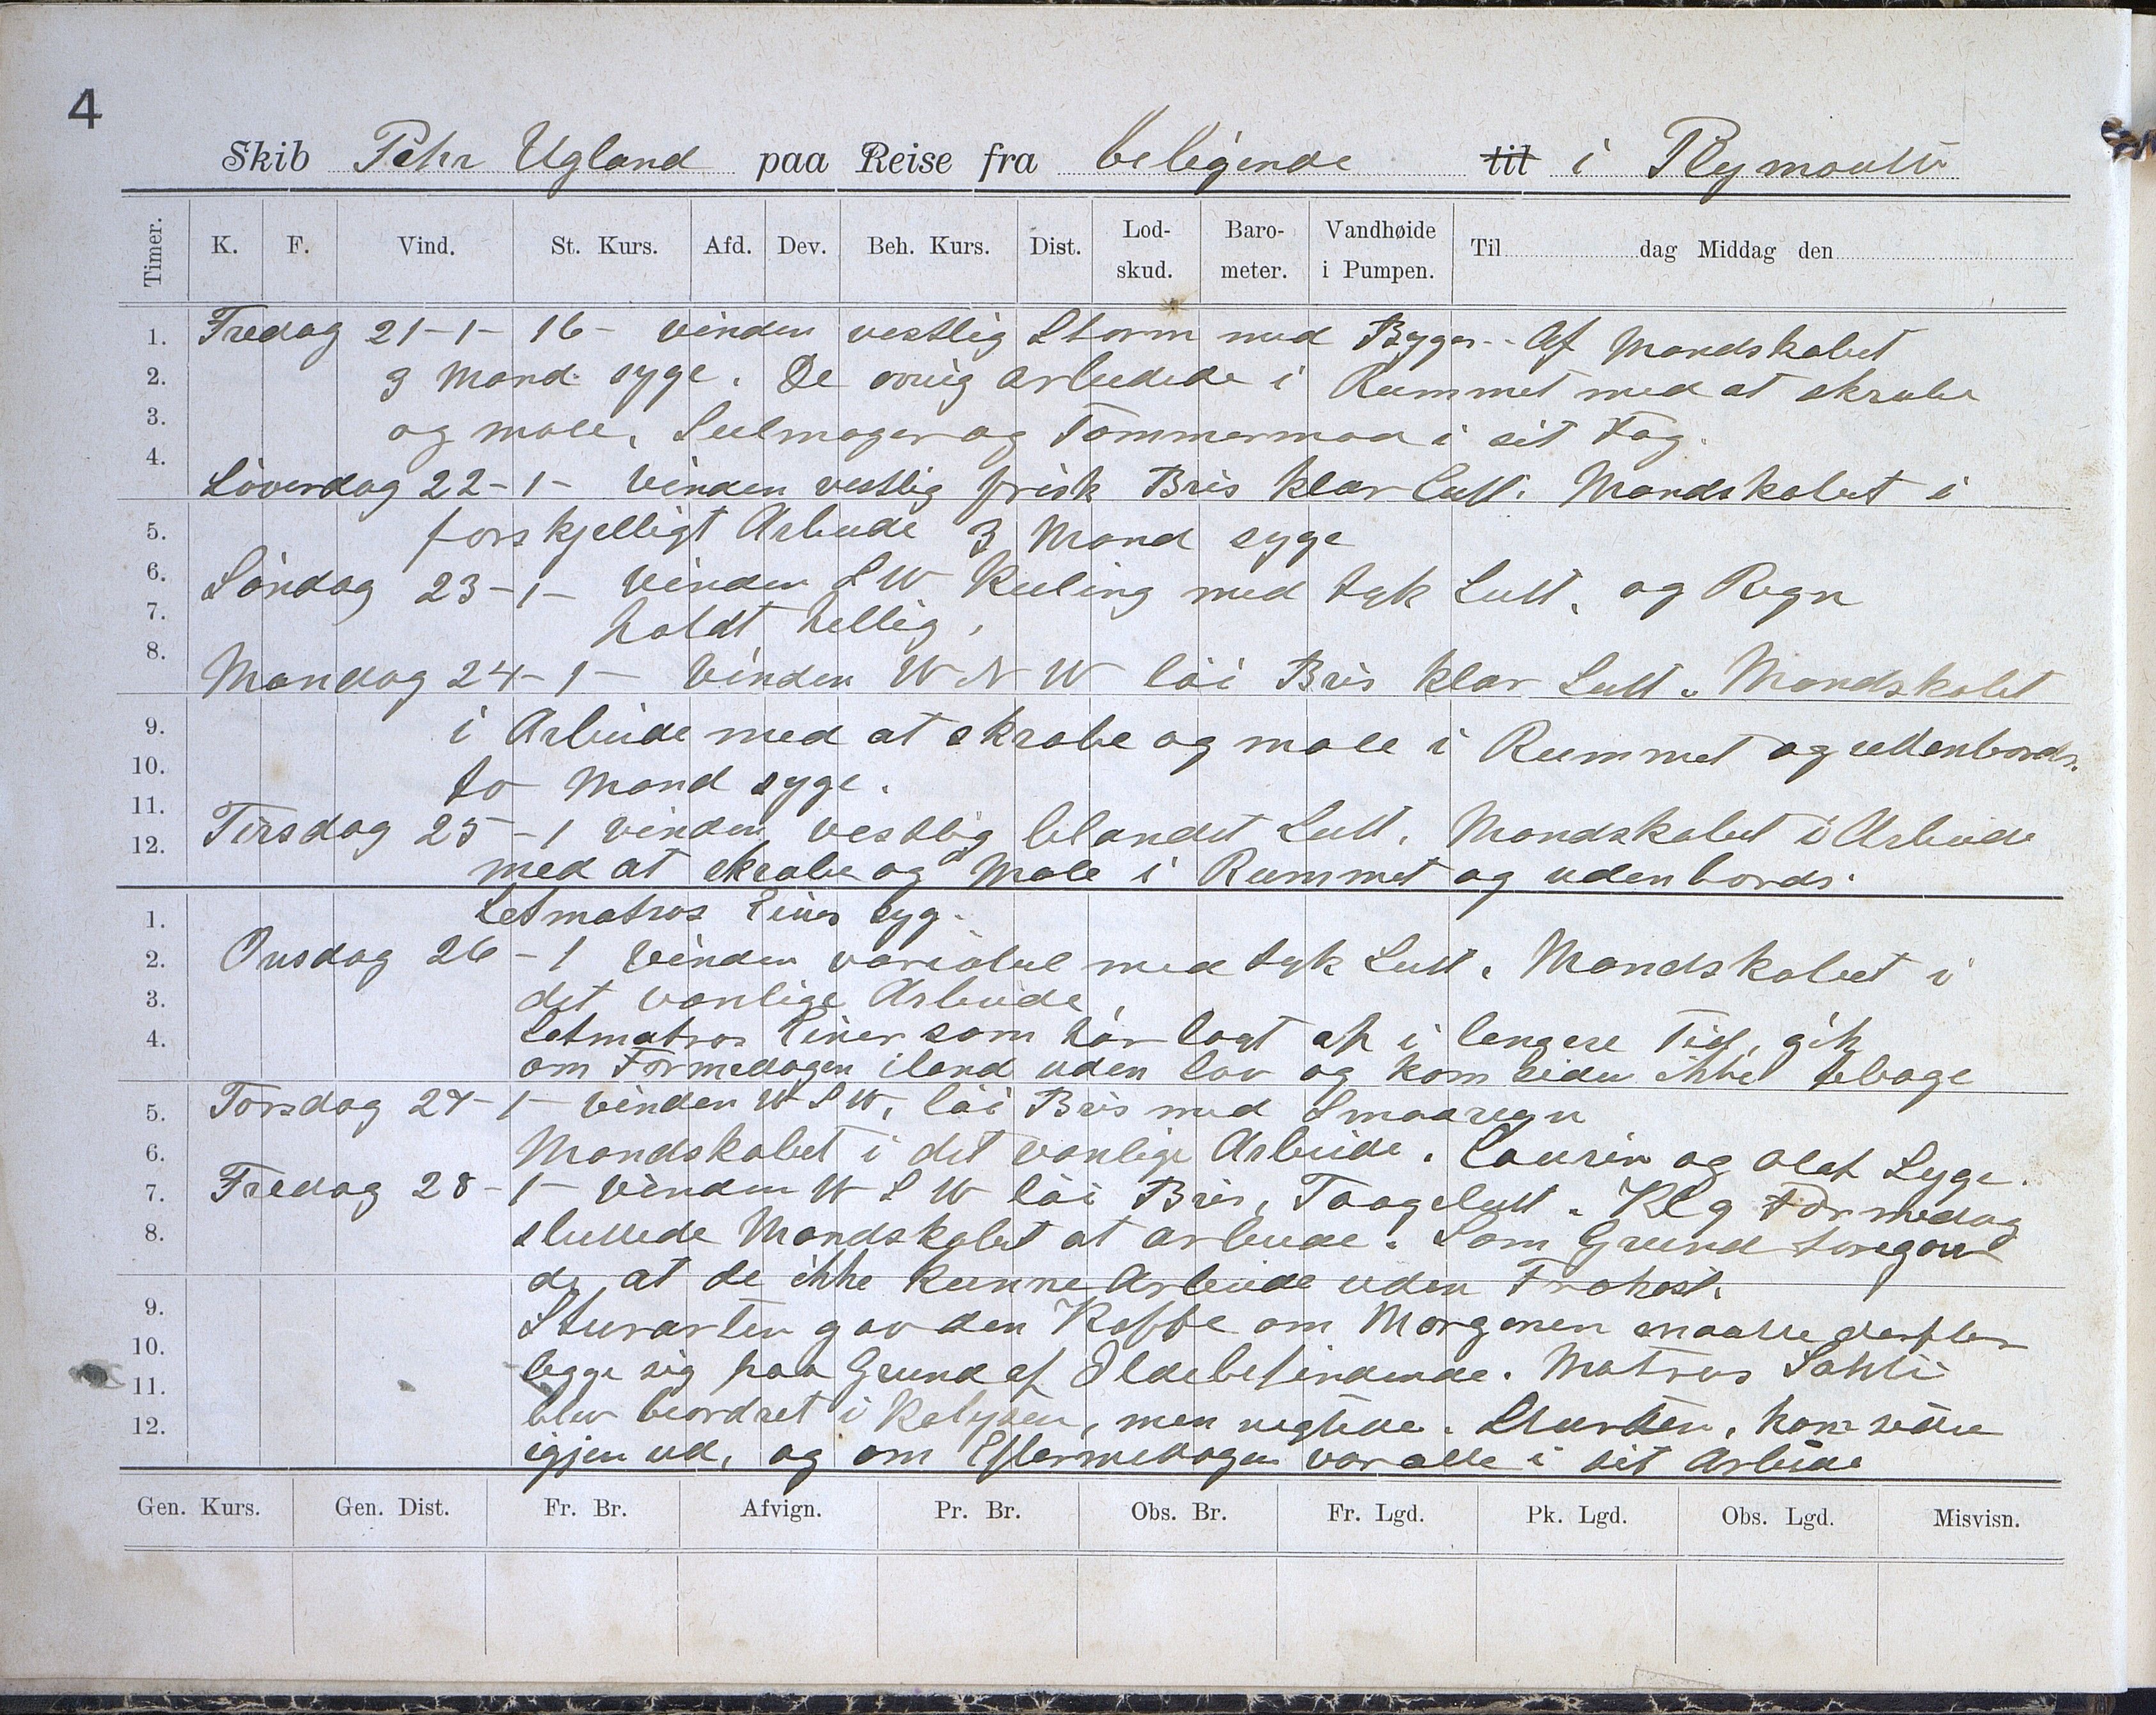 4
Skib Pehr Ugland paa Reise fra beligende til i Plymouth
Timer. K. F. Vind. St. Kurs. Afd. Dev. Beh. Kurs. Dist. Lod-skud. Baro-meter. Vandhøide i Pumpen. Til dag Middag den
1. Fredag 21-1-16- vinden vestlig Storm med Byger. Af Mandskabet
2. 3 Mand syge. De øvrig arbeidede i Rummet med at skrabe
3. og male. Seilmager og Tømmerman i sit Fag.
4. Löverdag 22-1- Vinden vestlig frisk Bris klar Luft. Mandskabet i
5. forskjelligt Arbeide 3 Mand syge
6. Söndag 23-1- Vinden SW Kuling med tyk Luft. og Regn
7. holdt hellig.
8. Mandag 24-1- Vinden WNW löi Bris klar Luft. Mandskabet
9. i Arbeide med at skrabe og male i Rummet og udenbords.
10. to Mand syge.
11. Tirsdag 25-1 vinden vestlig blandet Luft. Mandskabet i Arbeide
12. med at skrabe og Male i Rummet og udenbords.
1. Letmatros Einer syg.
2. Onsdag 26-1 Vinden variabel med tyk Luft. Mandskabet i
3. det vanlige Arbeide.
4. Letmatros Einer som har lagt af i lengere Tid, gik
om Formedagen iland uden lov og kom siden ikke tilbage
5. Torsdag 27-1- Vinden WSW, löi Bris med Smaaregn
6. Mandskabet i det vanlige Arbeide. Laurin og Olaf Syge.
7. Fredag 28-1- Vinden WSW löi Bris, Taageluft. Kl 9 Formedag
8. sluttede Mandskabet at arbeide. Som Grund foregav
de at de ikke kunne Arbeide uden Frokost.
9. Stuarten gav den Kaffe om Morgenen maatte derefter
10. legge sig paa Grund af Ildebefindende. Matros Sahli
11. blev beordret i Kabysen, men negtede. Stuarten, kom sidre
12. igjen ud, og om Eftermedagen var alle i sit Arbeide
Gen. Kurs. Gen. Dist. Fr. Br. Afvign. Pr. Br. Obs. Br. Fr. Lgd. Pk. Lgd. Obs. Lgd. Misvisn.